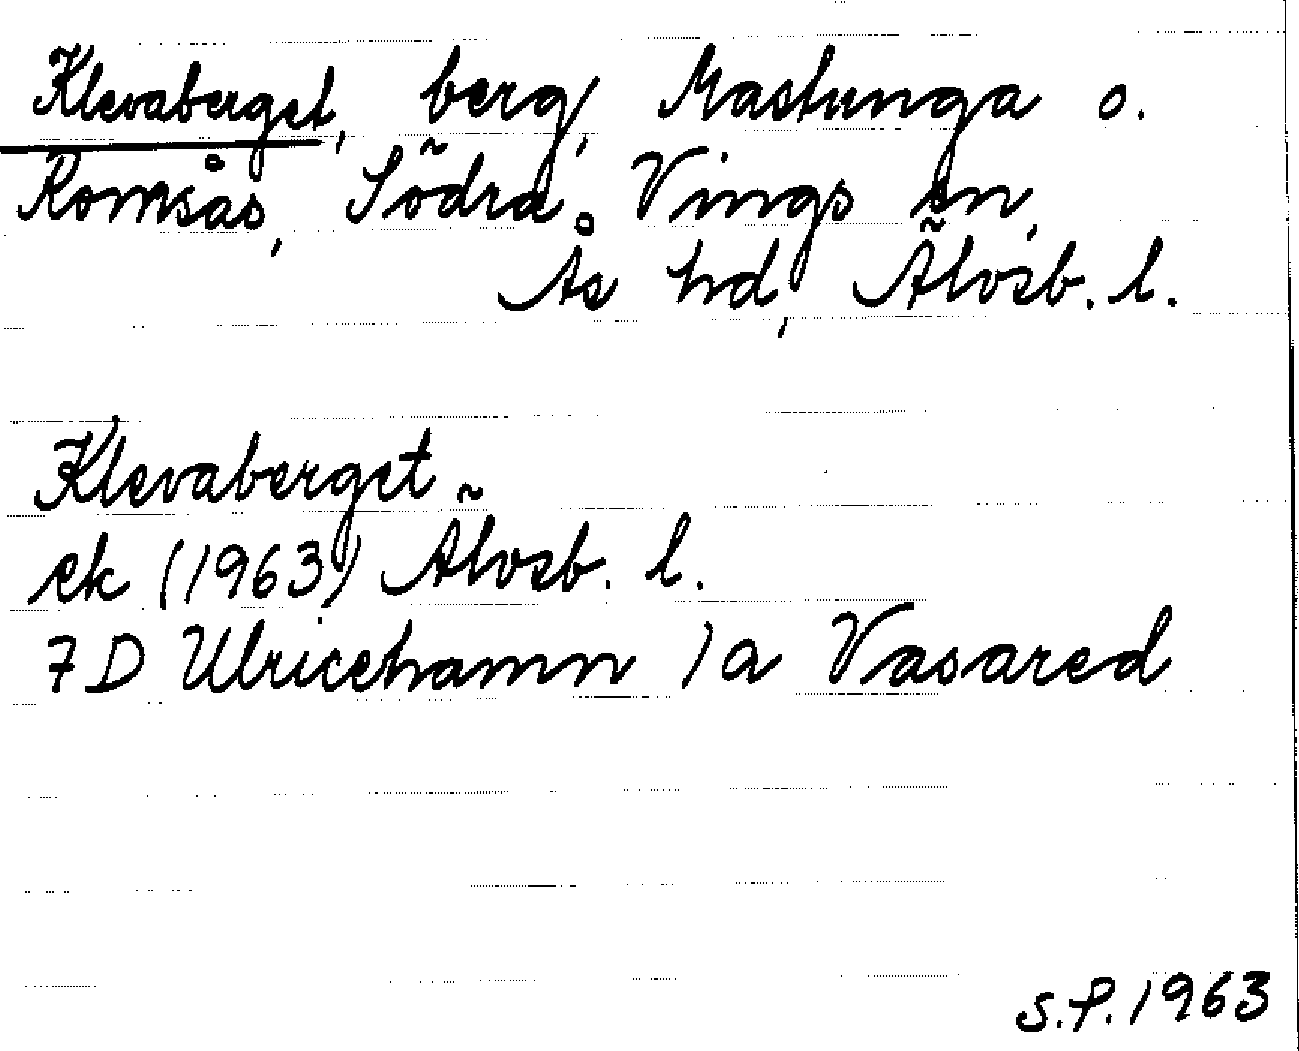 Klevaberget, berg, Mastunga o.
Komsås, Södra Vings sn,
Ås hd, Älvsb. l.
Klevaberget
ek (1963) Älvsb. l.
7D Ulricehamn 1a Vasared
S.P. 1963